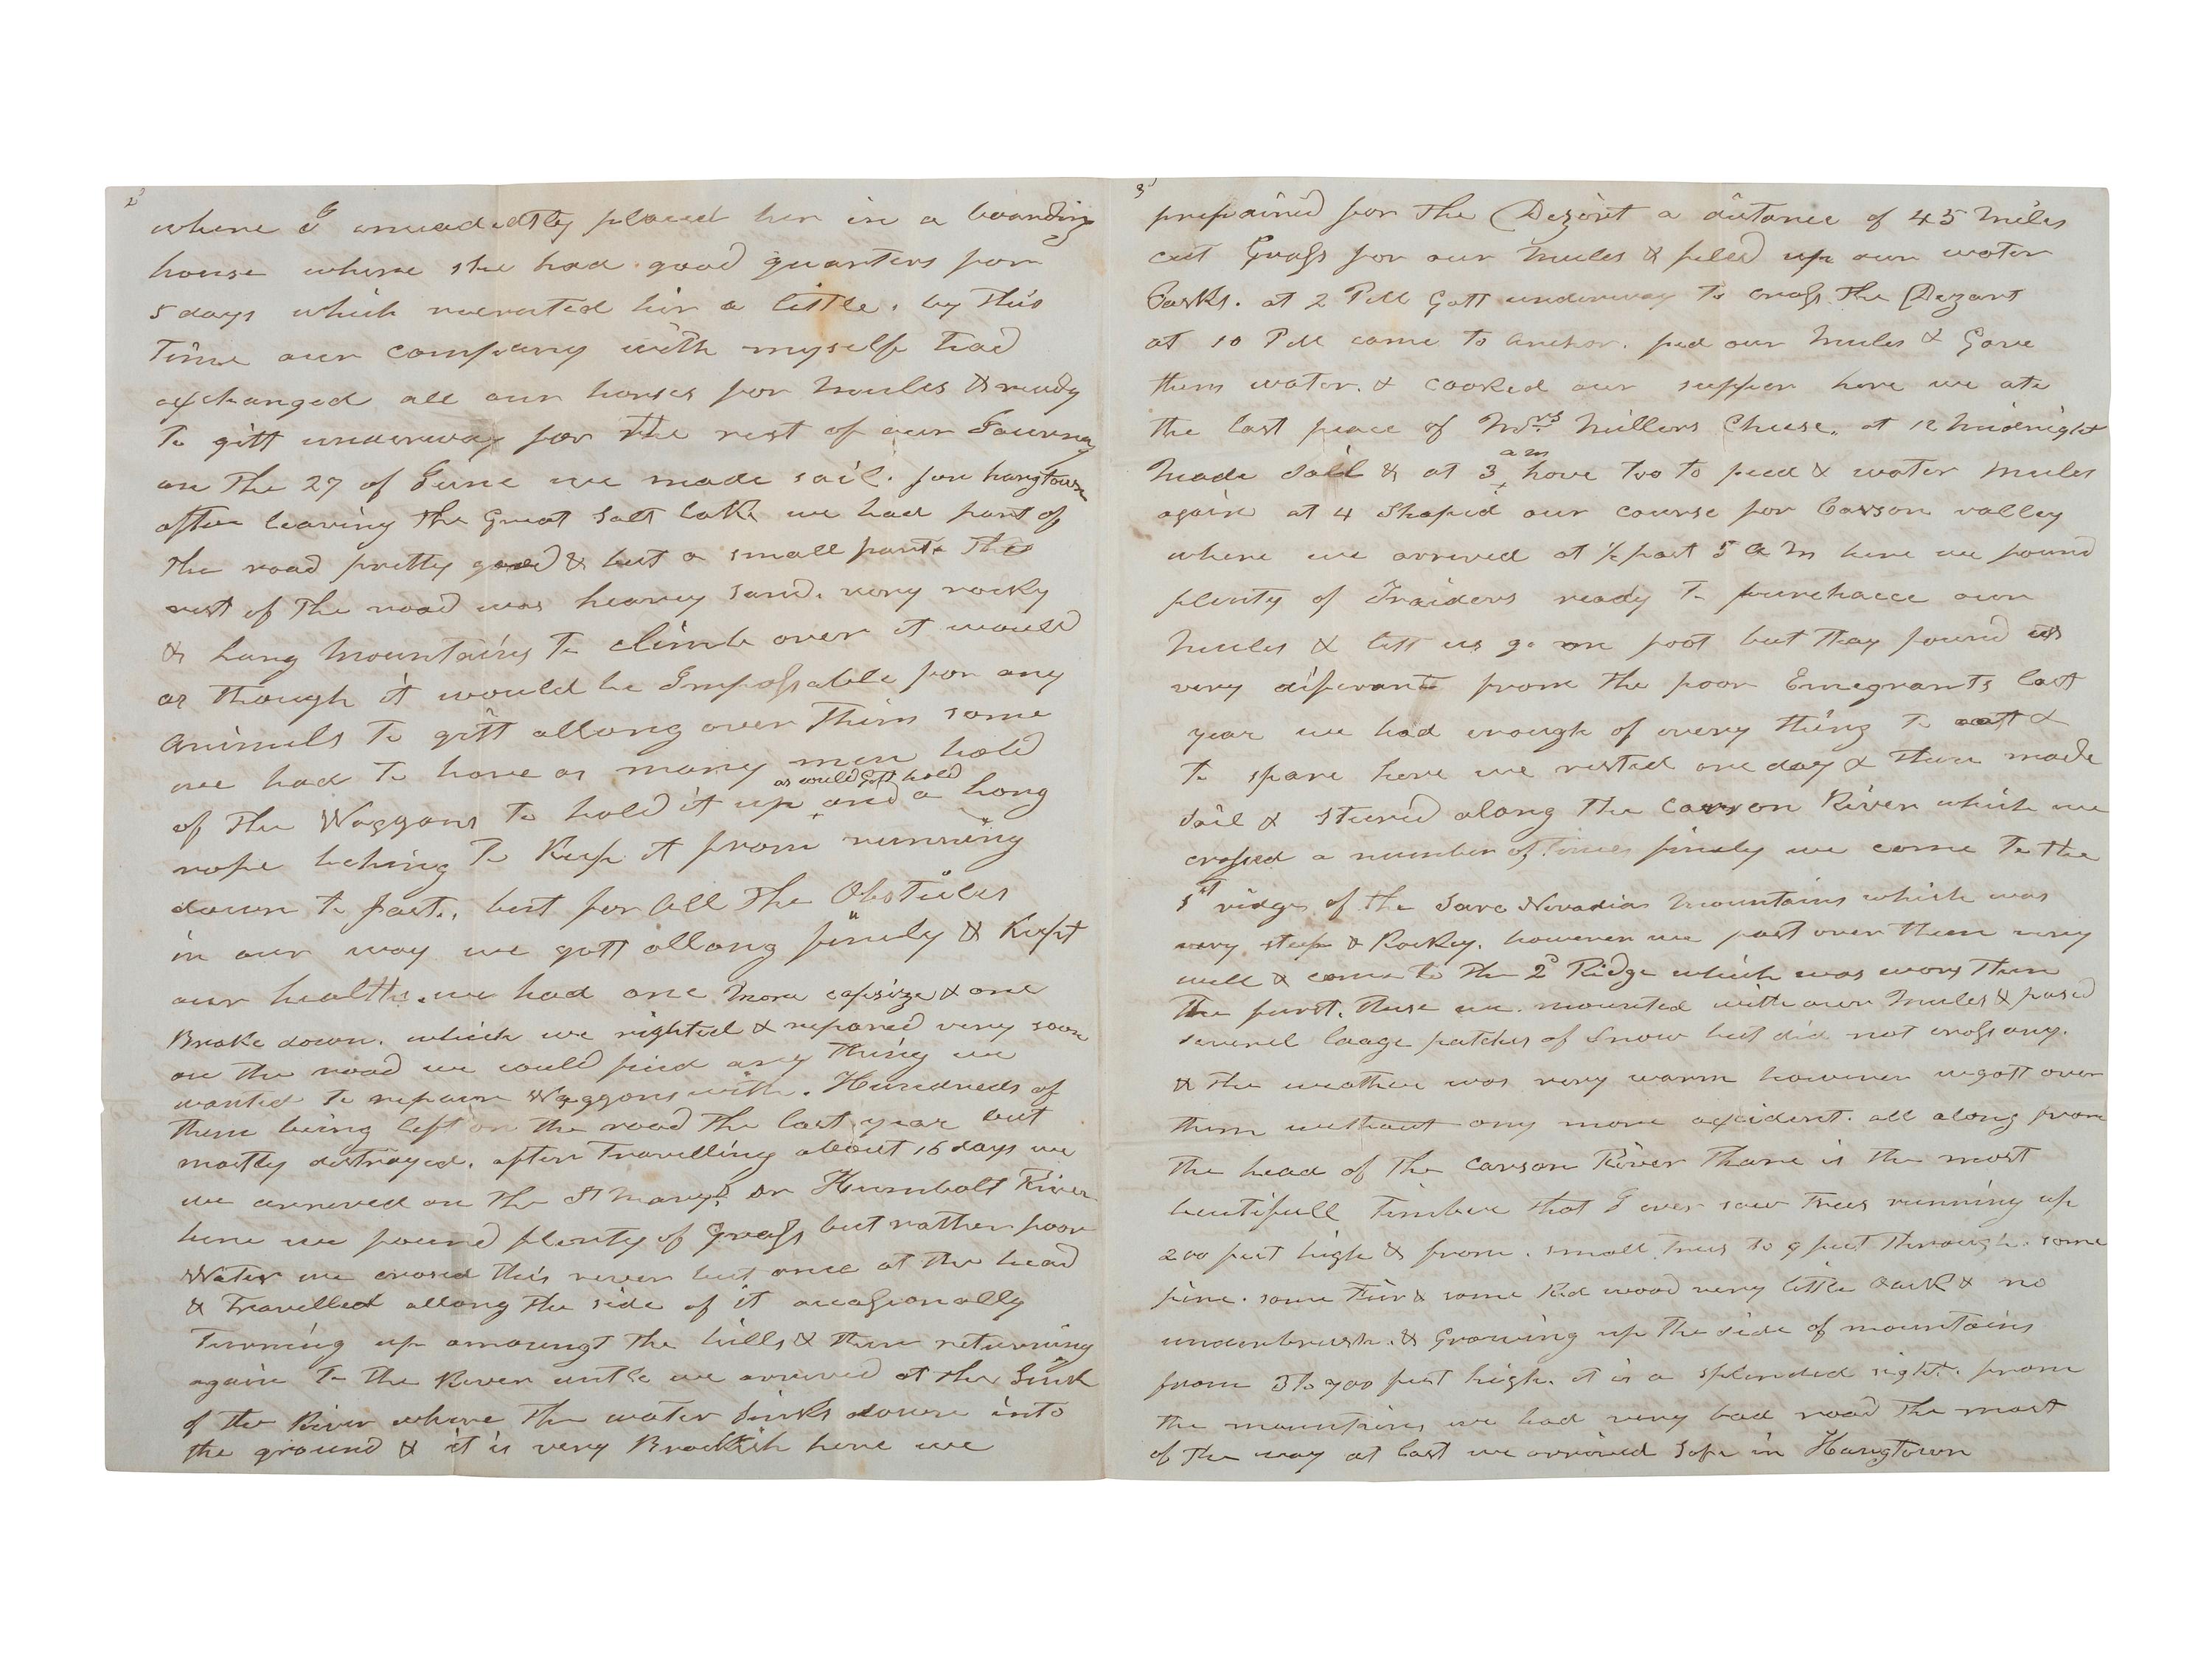 2
where I immadeatly placed her in a boarding
house where she had good quarters for
5 days which recruted hir a little. by this
Time our company with myself had
axchanged all our horses for Mules & ready
To gitt underway for the rest of our Journey
on the 27 of June we made sail. for hangtown
after leaving the Great Salt lake we had part of
the road pretty good & but a small part. The
rest of the road was heavey sand. very rocky
& hung Mountains To climb over it would
as though it would be Impossable for any
animels To gitt allong over Them some
we had To have as many men hold
as could gitt hold
of the Waggons To hold it up and a long
rope to Keep it from running
down to fast. but for All the Obsticles
in our way we gott allong finely & Kept
our healths. we had one more capsize & one
Brake down. which we righted & repared very soon
on the road we could find any thing we
wanted to repair Waggons with. Hundreds of
them being left on the road the last year but
mostly distroyed. after Travelling about 16 days we
we arreved on the St Marys or Humbolt River
here we found plenty of Grass but rather poor
Water we crosed this rever but once at the head
& Travelled allong the side of it occasionally
Turning up amoungt the hills & then returning
again To the River untle we arrived at the Sink
of the River where the water Sinks down into
the ground & it is very Brackish here we
3
prepaired for the Dezert a distance of 45 Miles
cut Grass for our Mules & filed up our water
Casks. at 2 PM Gott underway To cross the Dezart
at 10 PM came to Anchor. fed our Mules & Gave
them water. & cooked our supper here we ate
the last peace of Mrs Millers Cheese. at 12 Midnight
am
Made Sail & at 3 hove too to feed & water Mules
again at 4 Shaped our course for Carson valley
where we arreved at ½ past 5 AM here we found
plenty of Traiders ready To purchace our
Mules & lett us go on foot but they found us
very diferant from the poor Emegrants last
year we had enough of every thing To eat &
To spare here we rested one day & then made
Sail & steered along the Carson River which we
crossed a number of Times finely we come To the
1st ridge of the Sare Nevadias Mountains which was
very steep & Rockey. however we past over them very
well & come to the 2d Ridge which was wors then
the furst. these we mounted with our Mules & pased
severel laage patches of Snow but did not cross any.
& the weather was very warm however we gott over
them without any more axcident. all along from
the head of the Carson River thare is the most
beutifull Timber that I ever saw Trees running up
200 feet high & from. small Trees to 9 feet through. some
pine. some Fir & some Red wood very little Oack & no
underbrush. & Growing up the side of mountains
from 3 to 700 feet high. it is a splended sight. from
the mountains we had very bad road the most
of the way at last we arrived safe in Hangtown